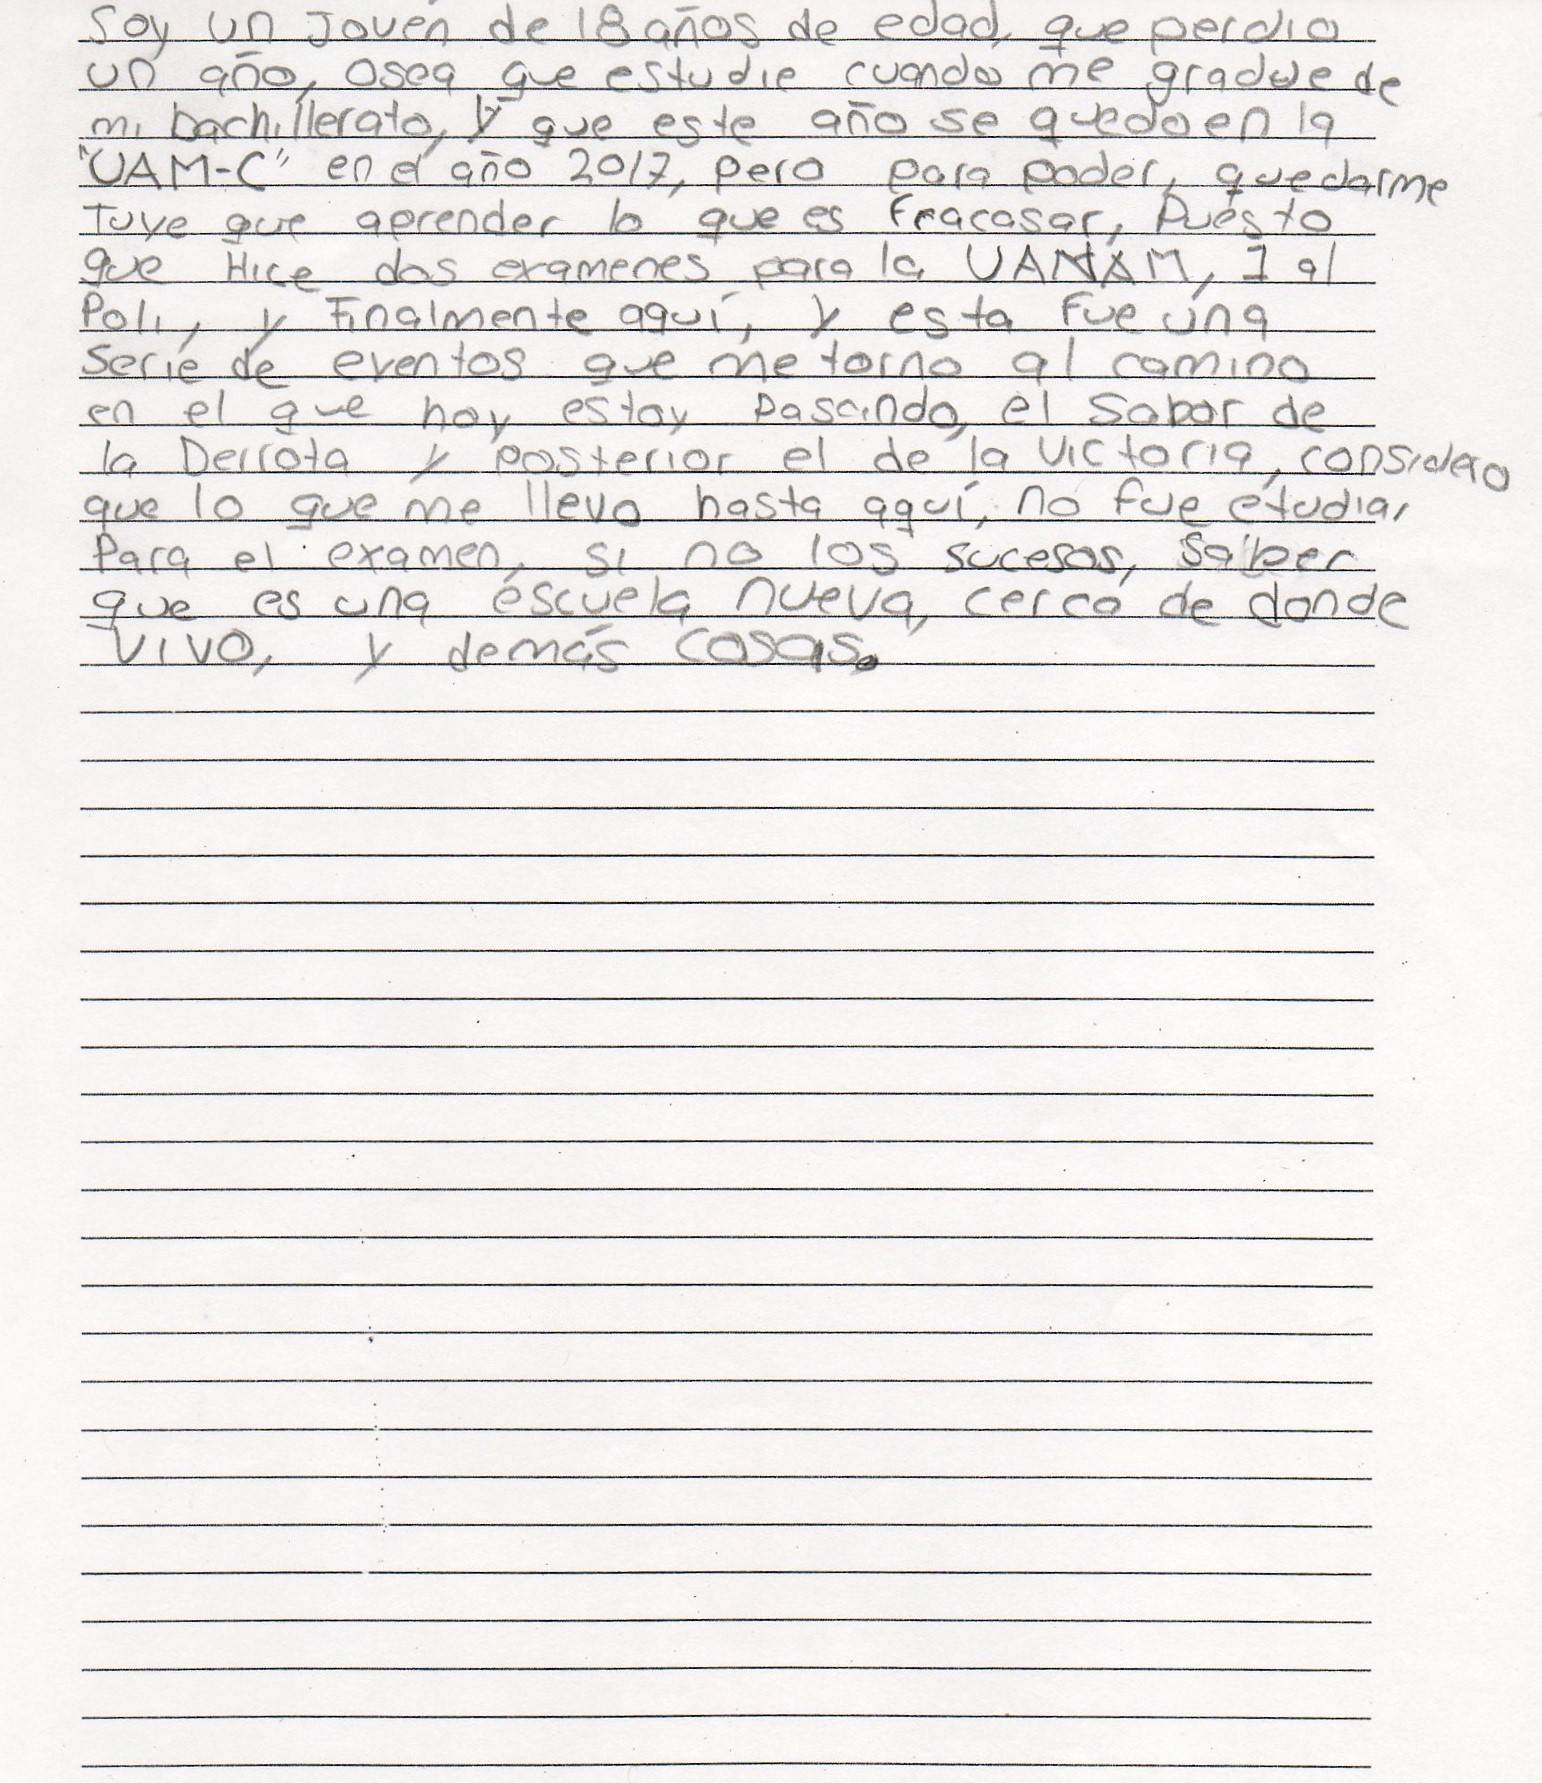 Soy un Joven de 18 años de edad, que perdio
un año, osea que estudie cuando me gradue de
mi bachillerato, y que este año se quedo en la
"UAM-C" en el año 2017, pero para poder, quedarme
Tuve que aprender lo que es fracasar, Puesto
que Hice dos examenes para la UANAM, 1 al
Poli, y Finalmente aquí, y esta fue una
Serie de eventos que me torno al camino
en el que hoy estoy Pasando, el Sabor de
la Derrota y posterior el de la victoria, considero
que lo que me llevo hasta aquí, no fue etudiar
Para el examen, si no los sucesos, Saber
que es una escuela nueva, cerca de donde
vivo, y demás cosas.